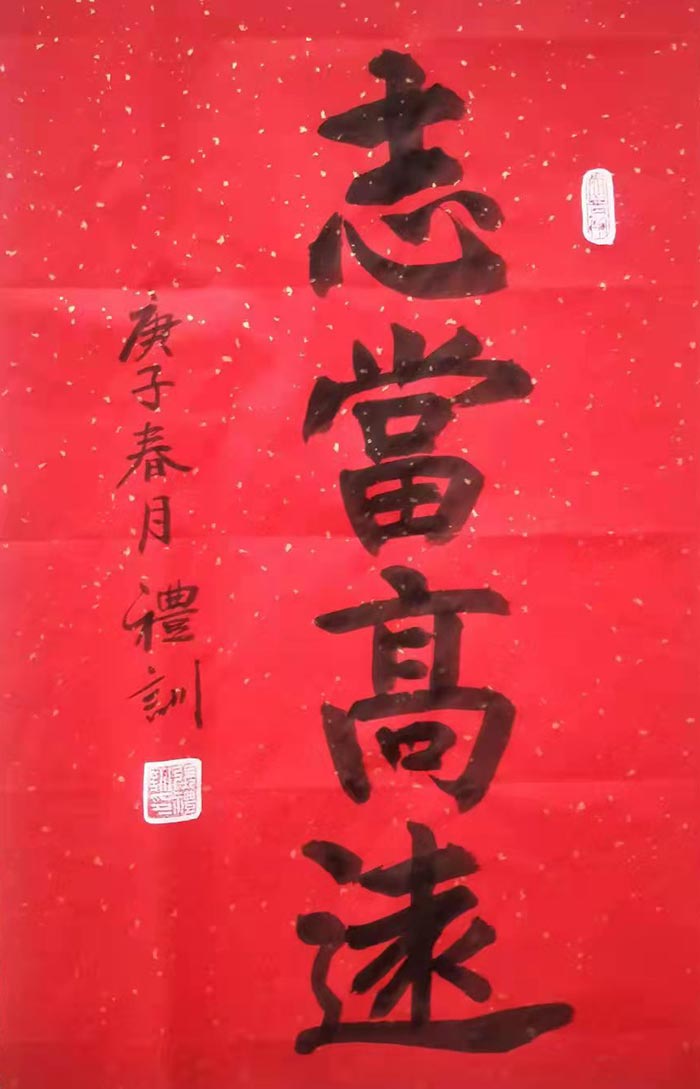 志當高遠
庚子春月 禮訓